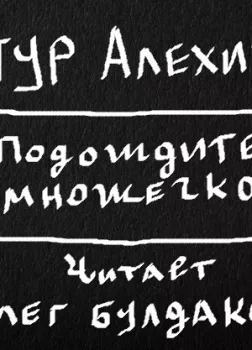 ТУР АЛЕХИ
Подождите
множечко
Читает
ЛЕГ БУЛДАКО